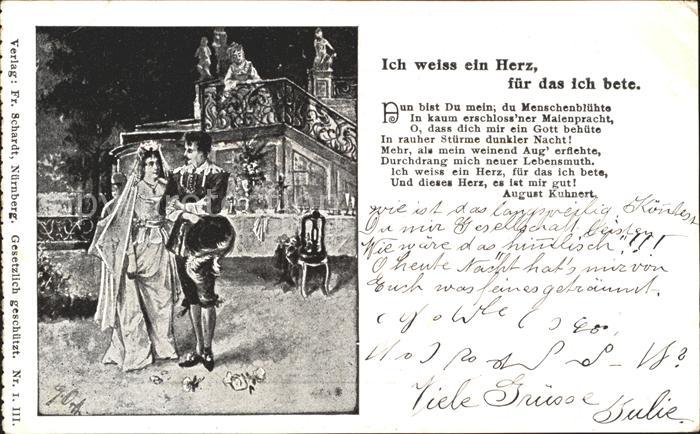 Verlag: Fr. Schardt, Nürnberg. Gesetzlich geschützt. Nr. I. III.
Ich weiss ein Herz,
für das ich bete.
Nun bist Du mein; du Menschenblühte
In kaum erschloss'ner Maienpracht,
O, dass dich mir ein Gott behüte
In rauher Stürme dunkler Nacht!
Mehr, als mein weinend Aug' erflehte,
Durchdrang mich neuer Lebensmuth.
Ich weiss ein Herz, für das ich bete,
Und dieses Herz, es ist mir gut!
August Kuhnert.
wie ist das langweilig Könntest
Du mir Gesellschaft leisten
Wie wäre das himmlisch"!!!
O heute Nacht hat's mir von
Euch was feines geträumt.
Viele Grüsse
Julie.